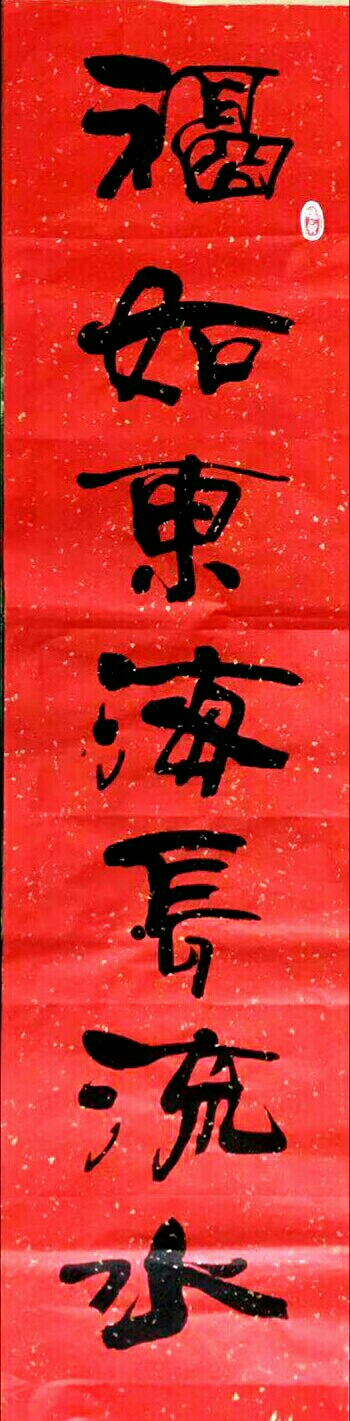 福如東海長流水